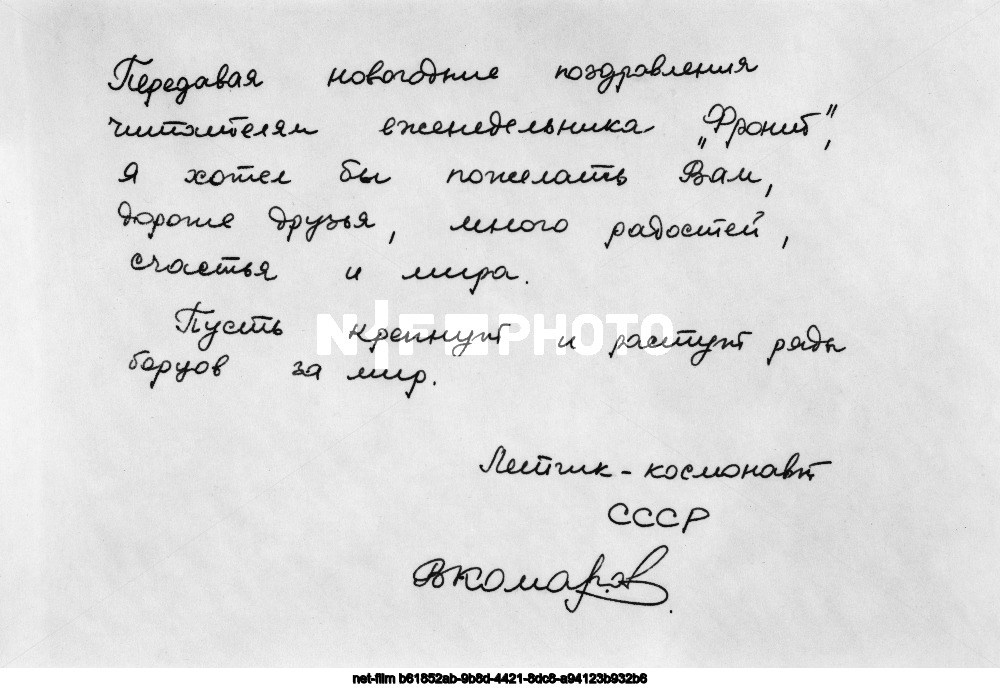 Передавая новогодние поздравления
читателям еженедельника „Фронт",
я хотел бы пожелать Вам,
дорогие друзья, много радостей,
счастья и мира.
Пусть крепнут и растут ряды
борцов за мир.
NIF PHOTO
Летчик-космонавт
СССР
ВКомаров
net-film b61852ab-9b8d-4421-8dc8-a94123b932b6